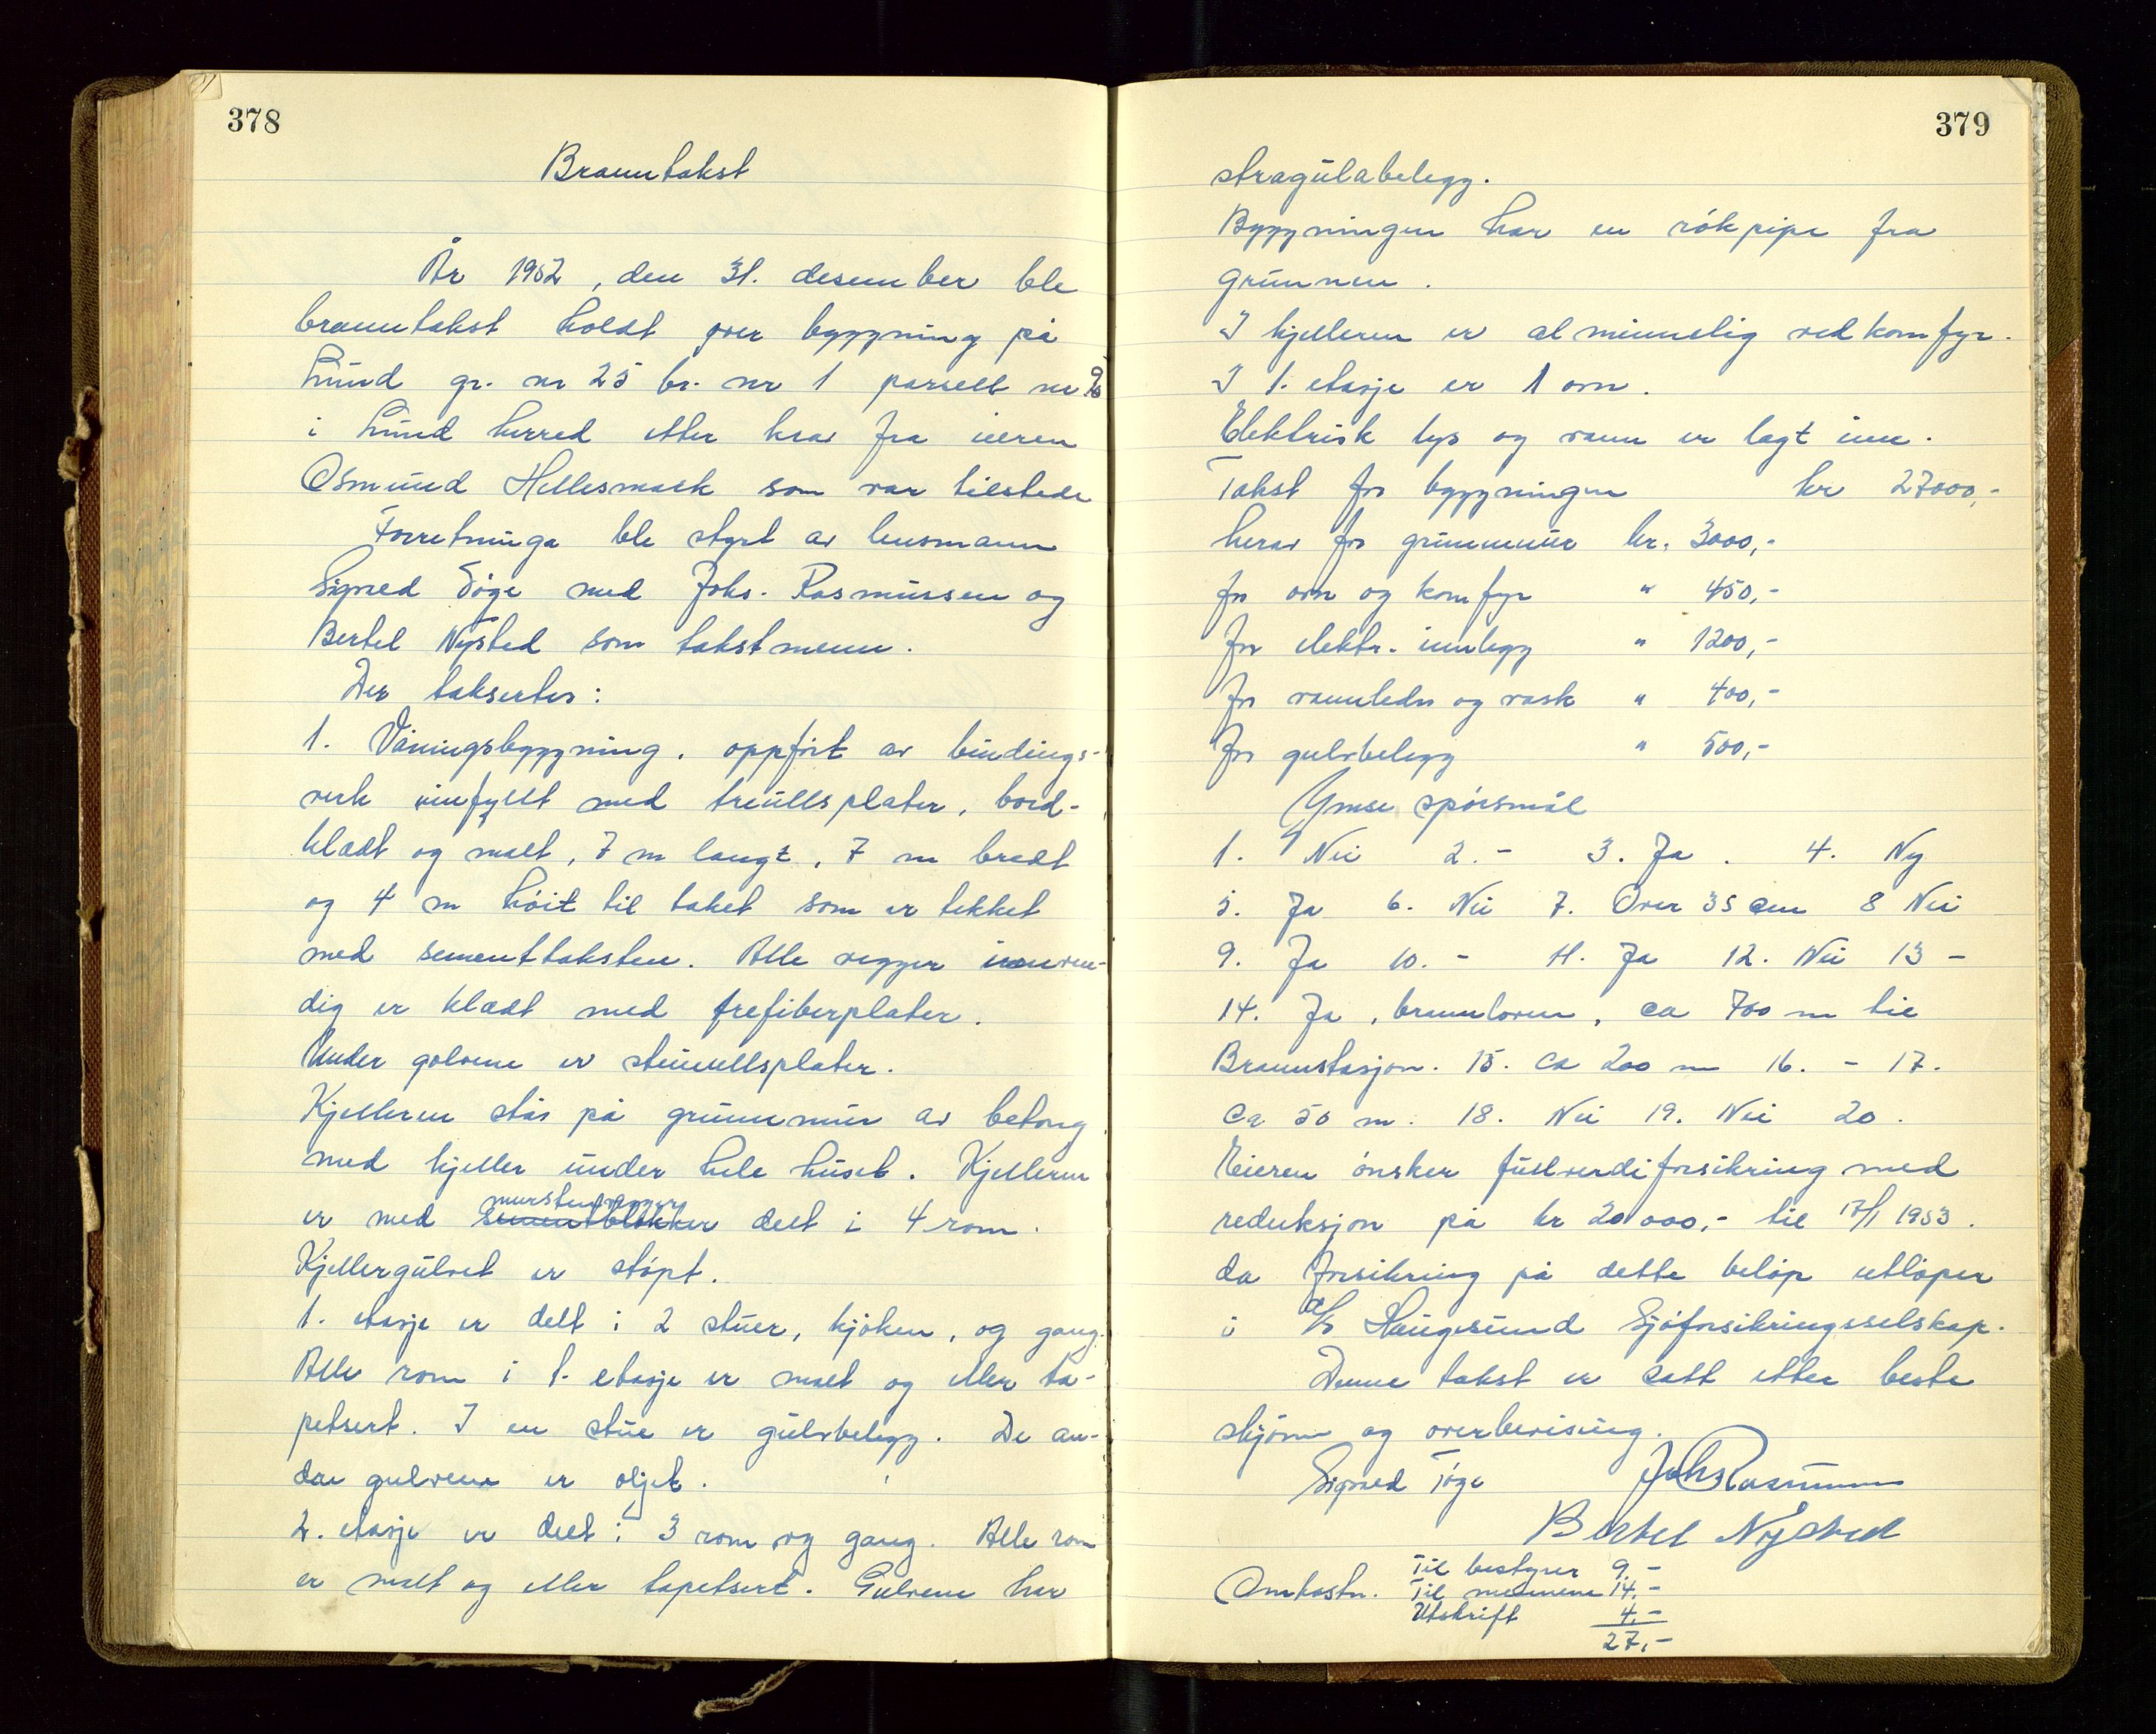 378
Branntakst
År 1952, den 31. desember ble
branntakst holdt over byggning på
Lund gr. nr 25 br. nr 1 parsell nr
i Lund herred etter krav fra eieren
Osmund Hellesmark som var tilstede
Forretninga ble styrt av lensmann
Sigved Töge med Johs. Rasmussen og
Bertel Nysted som takstmenn.
Der taksertes:
1. Våningsbyggning, oppfört av bindings-
verk innfyllt med treullsplater, bord-
kledt og malt, 7 m langt, 7 m bredt
og 4 m höit til taket som er tekket
med sementtaksten. Alle vegger innven-
dig er kledt med trefiberplater.
Under golvene er steinullsplater.
Kjelleren står på grunnmur av betong
med kjeller under hele huset. Kjelleren
murstensvegger
er med sementblokker delt i 4 rom.
Kjellergulvet er stöpt.
1. etasje er delt i 2 stuer, kjöken, og gang.
Alle rom i 1. etasje er malt og eller ta-
petsert. I en stue er gulvbelegg. De an-
dre gulvene er oljet.
2. etasje er delt i 3 rom og gang. Alle rom
er malt og eller tapetsert. Gulvene har
379
stragulabelegg.
Byggningen har en rökpipe fra
grunnen.
I kjelleren er alminnelig vedkomfyr.
I 1. etasje er 1 ovn.
Elektrisk lys og vann er lagt inn.
Takst for byggningen kr 27000,-
herav for grunnmur kr. 3000,-
for ovn og komfyr " 450,-
for elektr. innlegg " 1200,-
for vannledn og vask " 400,-
for gulvbelegg " 500,-
Ymse spörsmål
1. Nei 2. - 3. Ja. 4. Ny
5. Ja 6. Nei 7. Over 35 cm 8 Nei
9. Ja 10. - 11. Ja 12. Nei 13 -
14. Ja, brannloven, ca 700 m til
Brannstasjon. 15. ca 200 m 16. - 17.
ca 50 m. 18. Nei 19. Nei 20.
Eieren önsker fullverdiforsikring med
reduksjon på kr 20000,- til 17/1 1953.
da forsikring på dette belöp utlöper
i a/s Haugesund Sjöforsikringsselskap.
Denne takst er satt etter beste
skjönn og overbevisning.
Sigved Töge Johs Rasmussen
Bertel Nysted
Omkostn. Til bestyrer 9.-
Til mennene 14.-
Utskrift 4.-
27,-